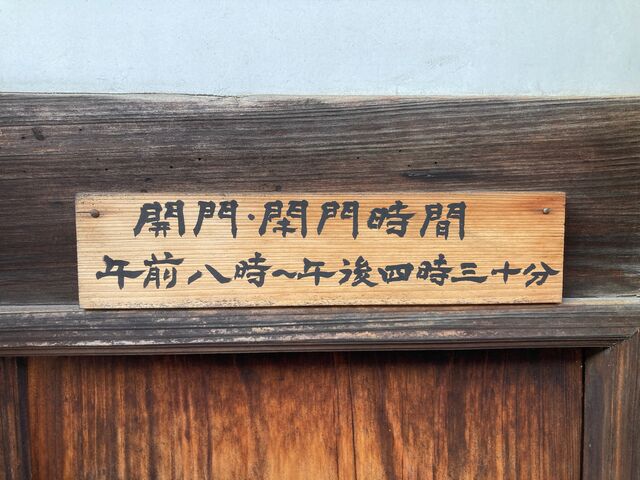 開門・閉門時間
午前八時〜午後四時三十分